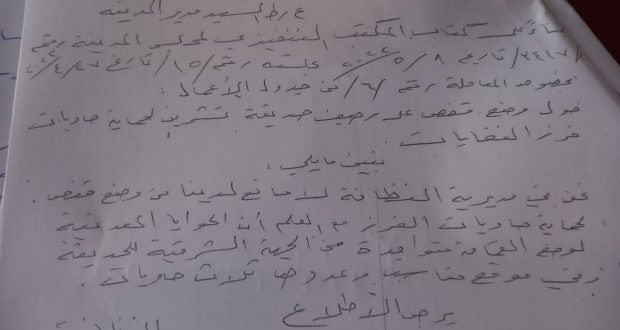 عرض السيد مدير المدينة
بناءً على كتاب المكتب التنفيذي لمجلس المدينة رقم
/٧٤١٢/ تاريخ ٨/٥/٢٠٢٢ جلسته رقم /١٥/ تاريخ ٢٧/٤/٢٠٢٢
بخصوص المعاملة رقم /٦/ من جدول الأعمال :
حول وضع قفص على رصيف حديقة تشرين لحماية حاويات
فرز النفايات
نبين مايلي :
نحن في مديرية النظافة لا مانع لدينا من وضع قفص .
لحماية حاويات الفرز مع العلم أن الحوايا المعدنية
لوضع القمامة متواجدة من الجهة الشرقية للحديقة
وفي موقع مناسب وعددها ثلاث حاويات .
يرجى الاطلاع
النظافة